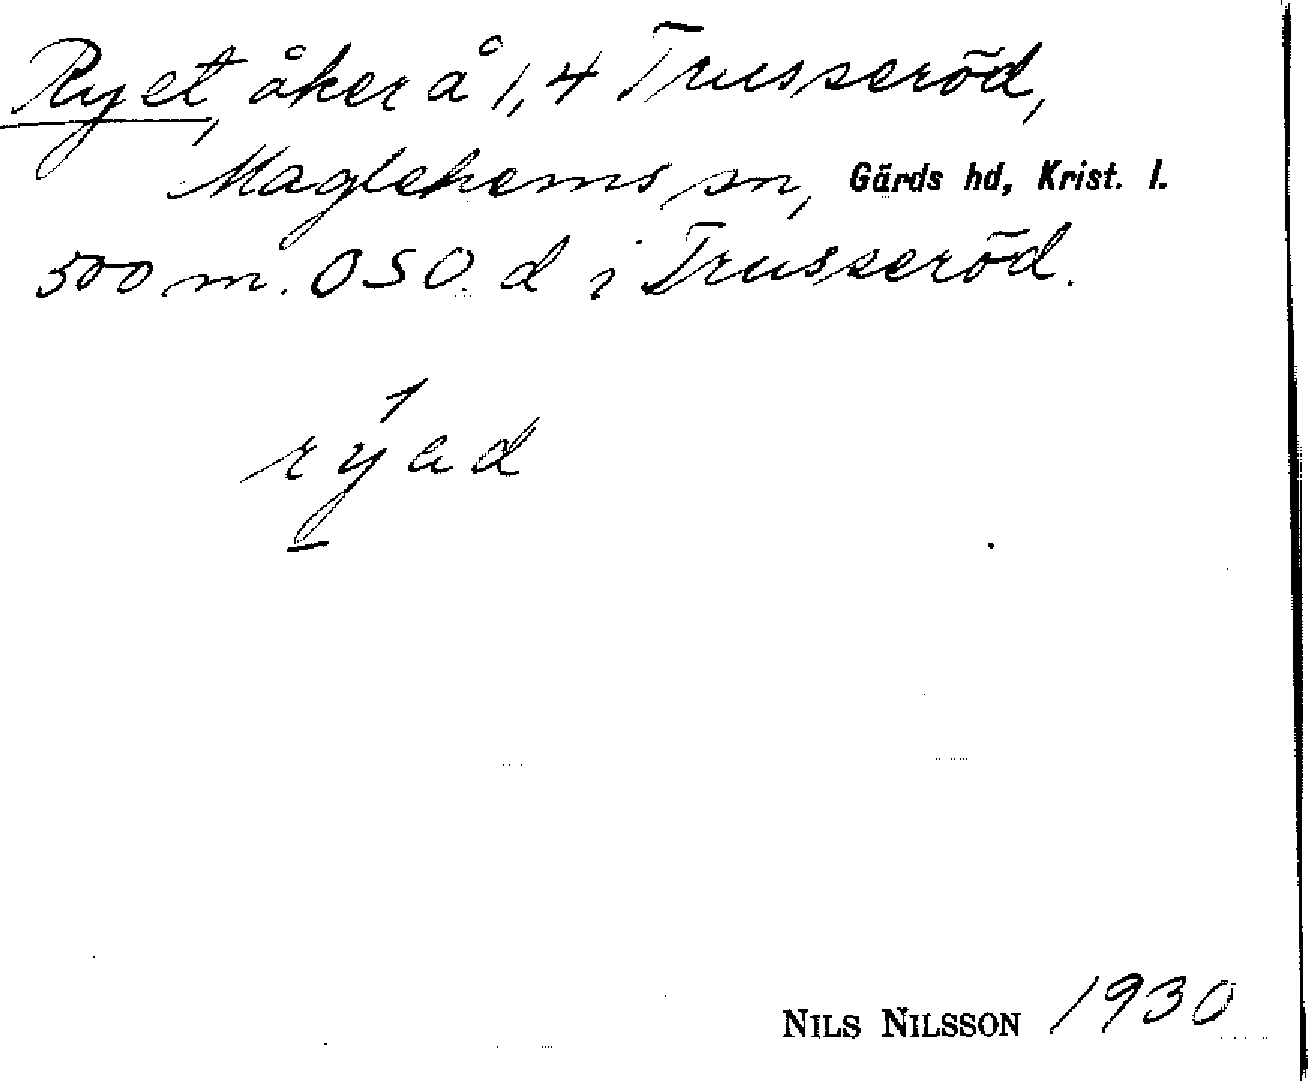 Ryet, åker å 1,4 Trusseröd,
Maglehems sn, Gärds hd, Krist. l.
500 m. OSO. d i Trusseröd.
rýad
NILS NILSSON 1930